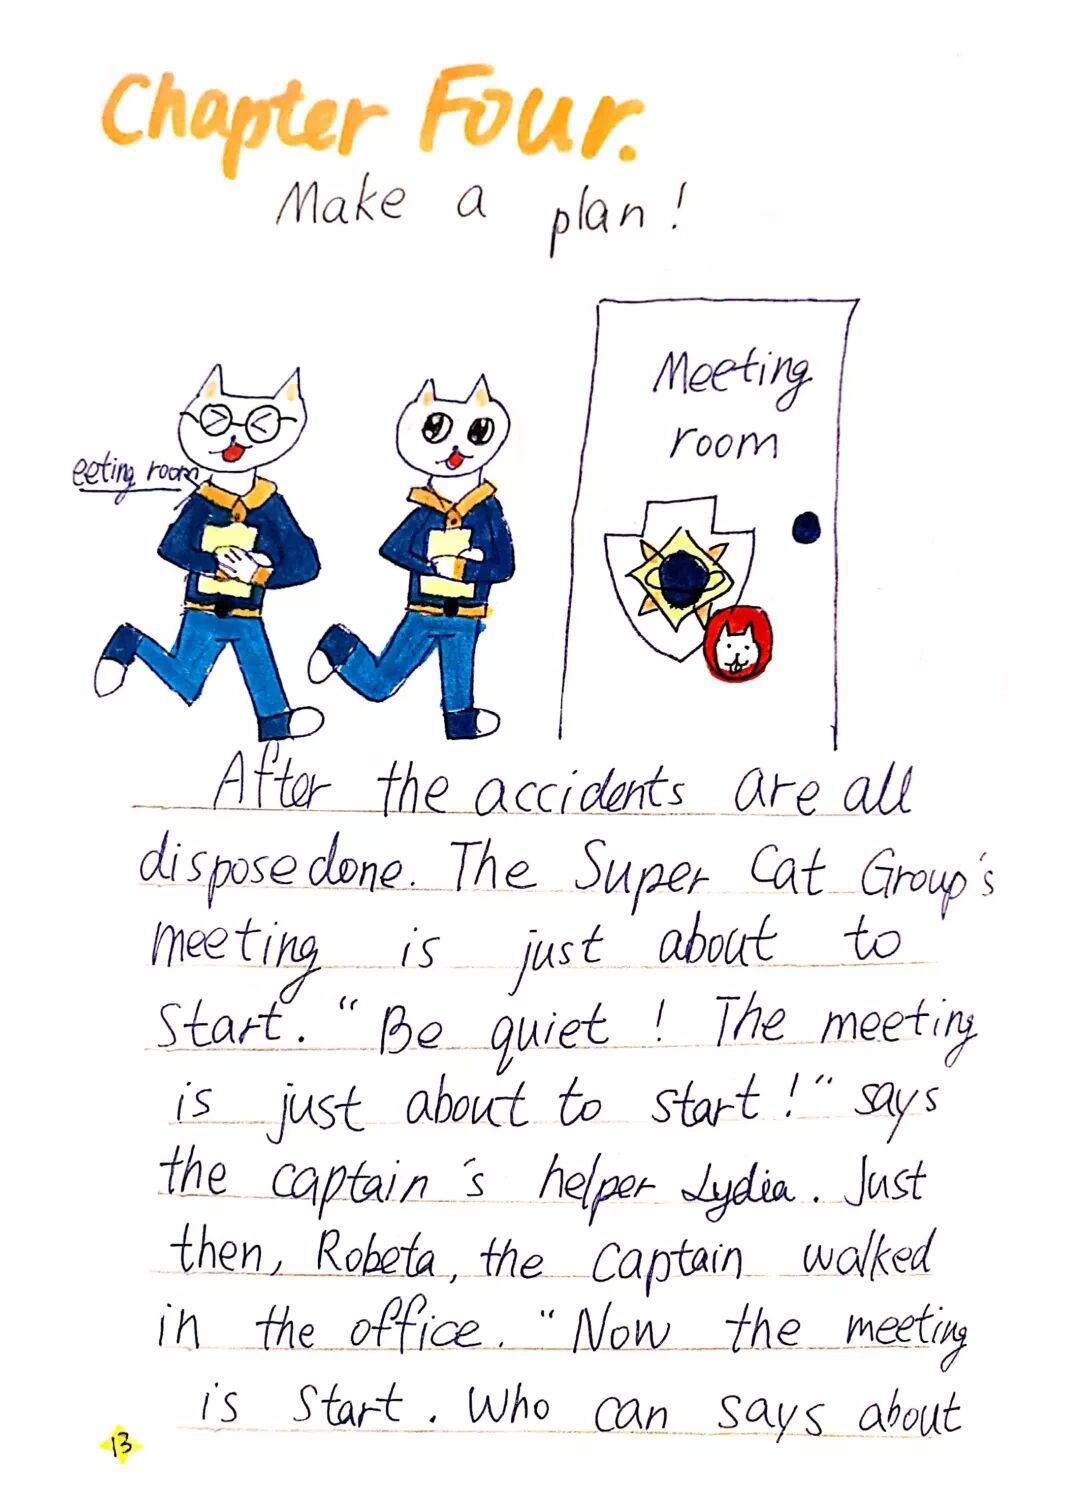 Chapter Four.
Make a plan!
Meeting
room
eeting room
After the accidents are all
dispose done. The Super Cat Group's
meeting is just about to
Start. "Be quiet! The meeting
is just about to start!" says
the captain's helper Lydia. Just
then, Robeta, the captain walked
in the office. "Now the meeting
is Start. Who can says about
13